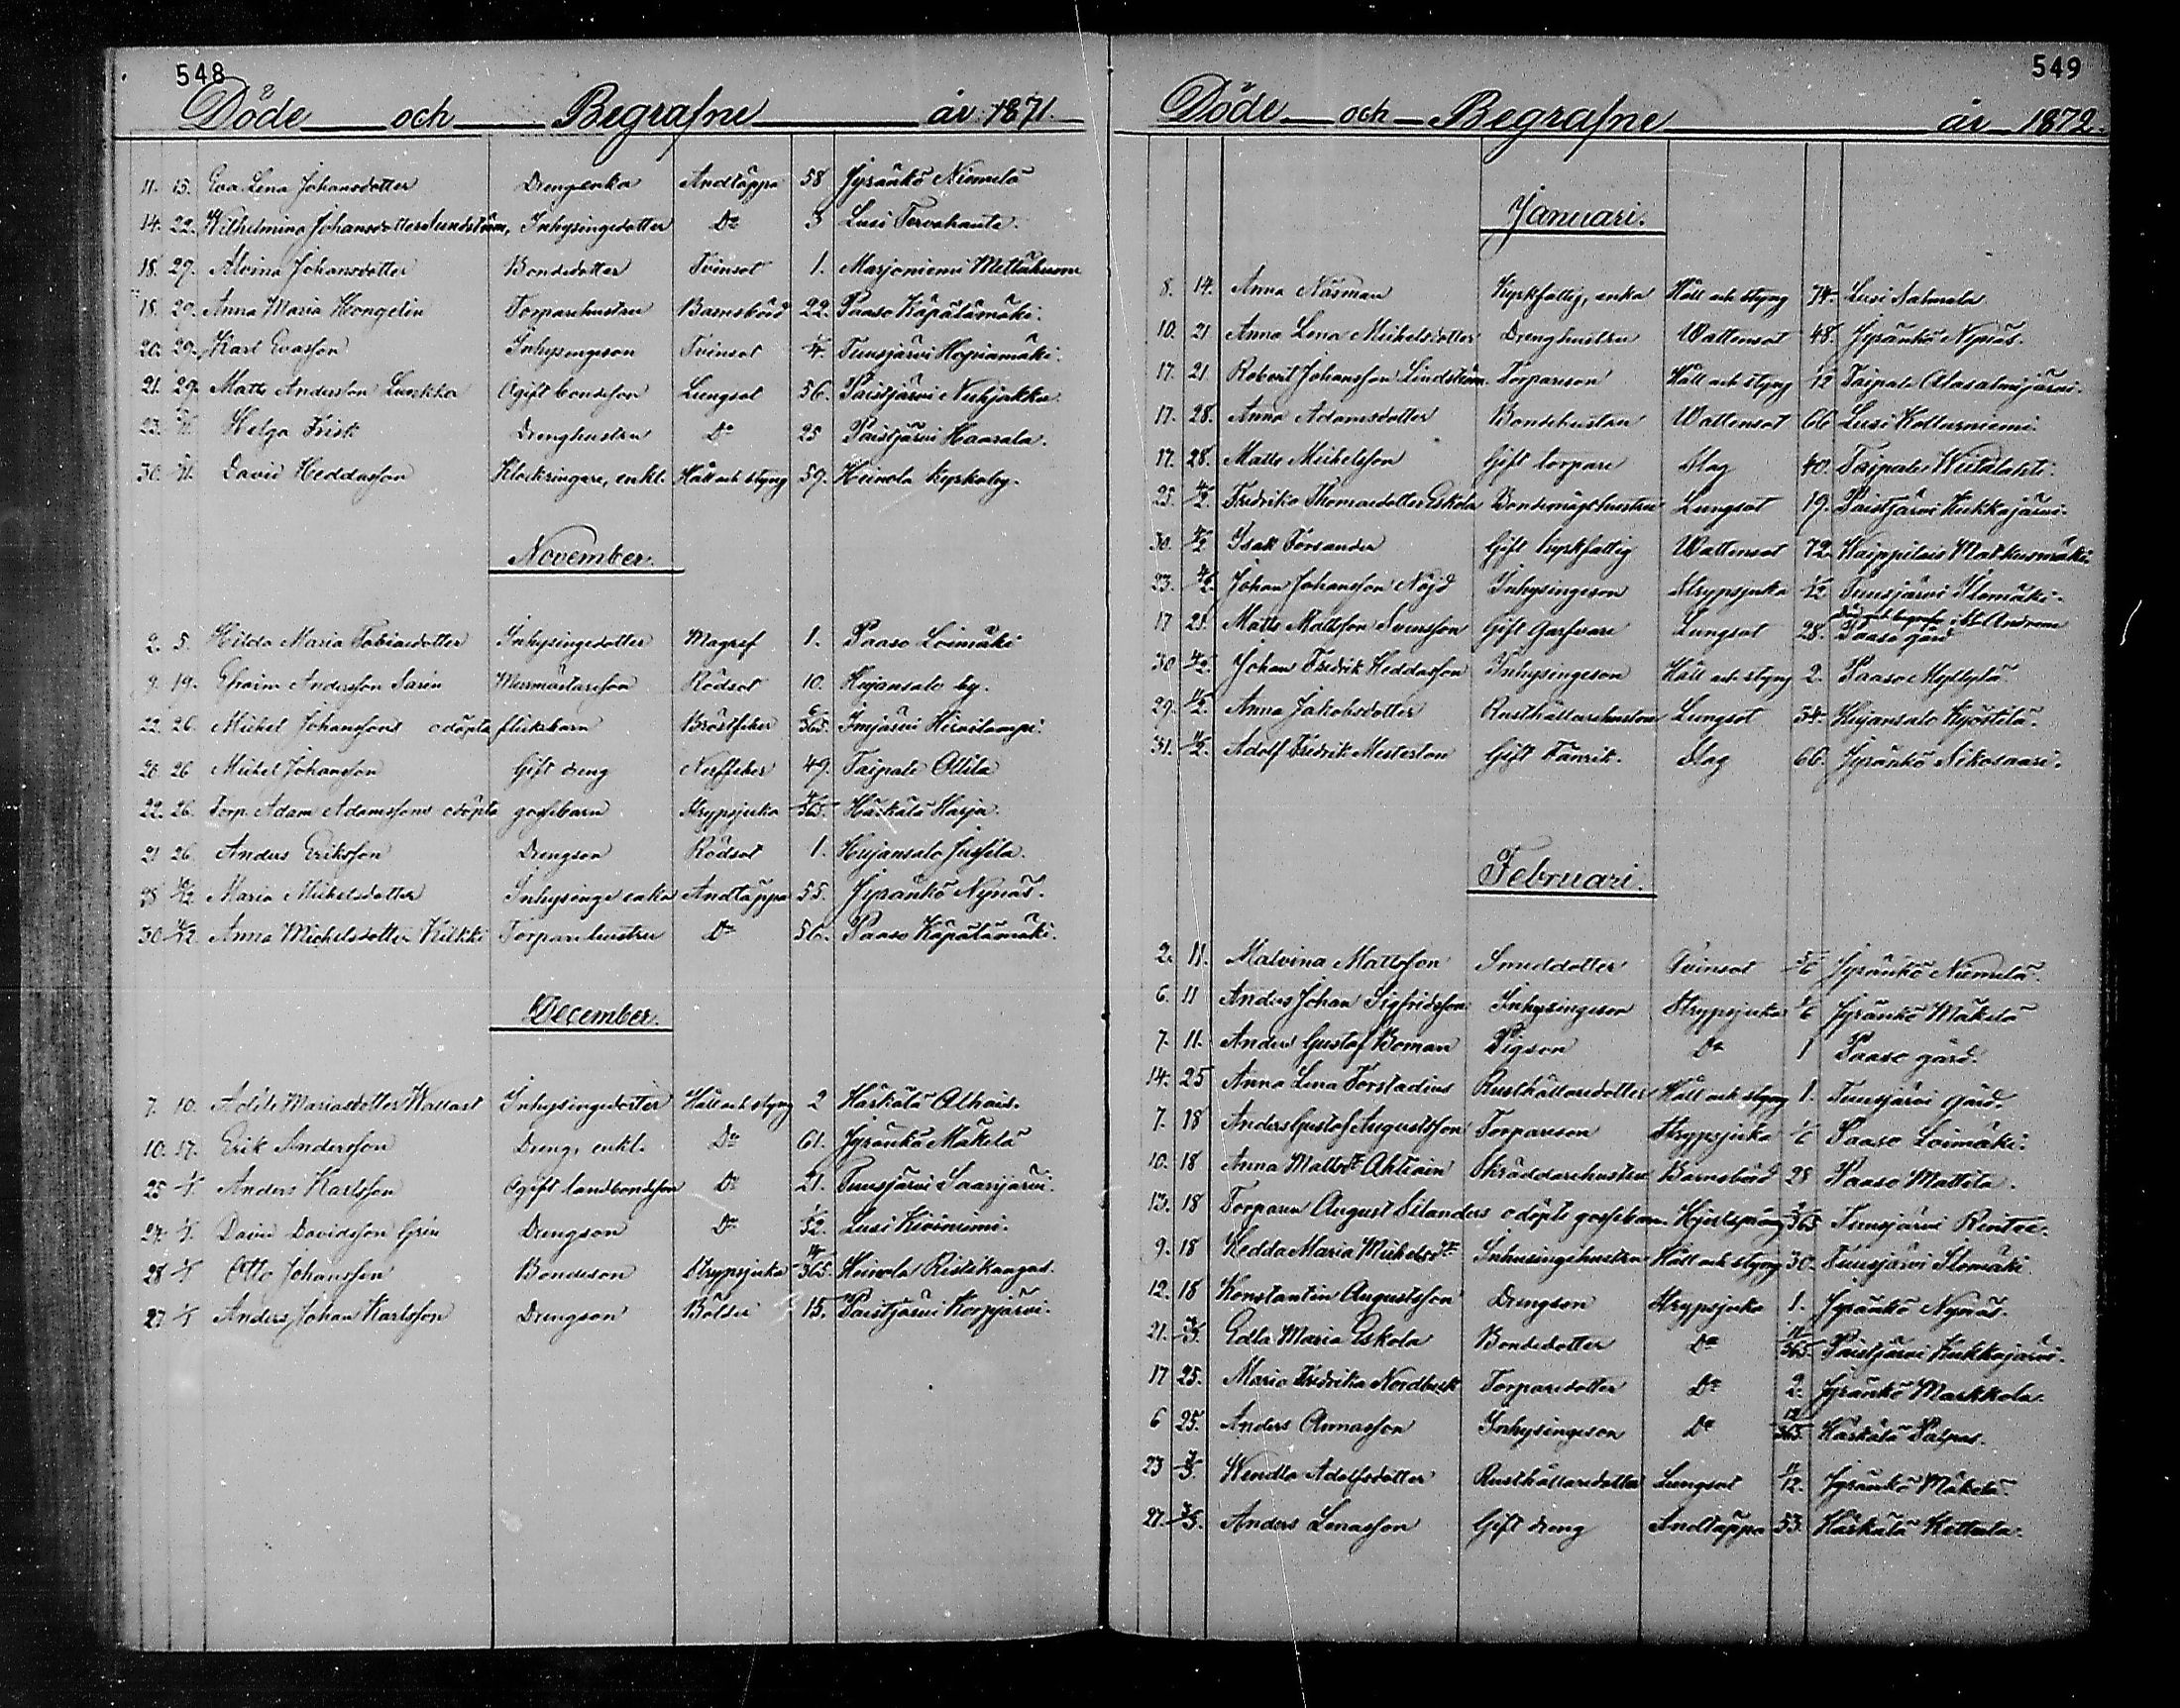 548
Döde och Begrafne år 1871.
11. 15. Eva Lena Johansdotter Drengenka Andtäppa 58 Jyränkö Niemelä
14. 22. Wilhelmina Johansdotter Sundström, Inhysingedotter Do 3 Lusi
18. 27. Alvina Johansdotter Bondedotter Tvinsot 1. Marjoniemi
18. 29. Anna Maria Hongelin Torparehustru Barnsbörd 22. Paaso Käpälämäki.
20. 29. Karl Evasson Inhysingeson Tvinsot Tuusjärvi
21. 29. Matts Andersson Ogift bondeson Lungsot 56. Paistjärvi
23. Helga Frisk Drenghustru Do 25 Paistjärvi Haarala.
30. David Heddasson Klockringare, enkl. Håll och styng 59. Heinola kyrkoby.
November.
2. 5. Hilda Maria Tobiasdotter Inhysingedotter Magref 1. Paaso Loimäki
9. 19. Efraim Andersson Sarin Rödsot 10. Hujansalo by.
22. 26. Michel Johanssons odöpta flickebarn Bröstfeber 6/365. Imjärvi Hirvilampi.
20. 26 Michel Johansson Gift dreng Nerffeber 49. Taipale Ollila
22. 26. Torp. Adam Adamssons odöpta gossebarn Strypsjuka Härkälä Harju.
21 26. Anders Eriksson Drengson Rödsot 1. Hujansalo Jussila.
28 Maria Michelsdotter Inhysinge enka Andtäppa 55. Jyränkö Nynäs.
30 Anna Michelsdotter Kilkki Torparehustru Do 56. Paaso Käpälämäki.
December.
7. 10. Adele Mariasdotter Inhysingedotter Håll och styng 2 Härkälä
10. 17. Erik Andersson Dreng, enkl. Do 61. Jyränkö Mäkelä
25 1/1. Anders Karlsson Ogift landbondeson Do 21. Tuusjärvi Saarijärvi.
27 1/1. David Davidsson Grön Drengson Do 1/52. Lusi Kiviniemi.
28 1/1 Otto Johansson Bondeson Strypsjuka 14/365. Heinola Ristikangas.
27 1/1 Anders Johan Karlsson Drengson Bölder 15. Paistjärvi Korpjärvi.
549
Döde och Begrafne år 1872.
Januari.
8. 14. Anna Näsman Kyrkfattig, enka Håll och styng 74. Lusi
10. 21 Anna Lena Michelsdotter Drenghustru Wattensot 48. Jyränkö Nynäs.
17. 21. Robert Johansson Lindström. Torpareson Håll och styng 1/12 Taipale
17. 28. Anna Adamsdotter Bondehustru Wattensot 66 Lusi
17. 28. Matts Michelsson Gift torpare Slag 40. Taipale
25. 4/2. Fredrika Thomasdotter Eskola Bondemågshustru Lungsot 19. Paistjärvi Kukkajärvi.
30. 4/2 Isak Forsander Gift kyrkfattig Wattensot 72. Kaippilais
23. 4/2 Johan Johansson Nöjd Inhysingeson Strypsjuka 1/12 Tuusjärvi Ilomäki.
17 25. Matts Mattsson Svensson Gift Garfvare Lungsot 28. Död och begrafn. i St. Andreæ Paaso gård
30 4/2. Johan Fredrik Heddasson Inhysingeson Håll och styng 2. Paaso Myllylä.
29. 11/2. Anna Jakobsdotter Rusthållarehustru Lungsot 34. Hujansalo Kyöstilä.
31. 11/2. Adolf Fredrik Mesterton Gift Fänrik. Slag 66. Jyränkö Sikosaari.
Februari.
2. 11. Malvina Mattsson Smeddotter Tvinsot 5/6 Jyränkö Niemelä.
6. 11 Anders Johan Sigfridsson Inhysingeson Strypsjuka 1/6 Jyränkö Mäkelä
7. 11. Anders Gustaf Boman Pigson Do 1 Paaso gård.
14. 25 Anna Lena Forstadius Rusthållaredotter Håll och styng 1. Tuusjärvi gård.
7. 18 Anders Gustaf Augustsson Torpareson Strypsjuka 1/6 Paaso Loimäki.
10. 18 Anna Mattsdr Ahtiain Skräddarehustru Barnsbörd 28 Paaso Mattila.
13. 18 Torparen August Silanders odöpte gossebarn. Hjertsprång 2/365 Tuusjärvi
9. 18 Hedda Maria Michelsdr Inhysingehustru Håll och styng 30. Tuusjärvi Ilomäki.
12. 18 Konstantin Augustsson Drengson Strypsjuka 1. Jyränkö Nynäs.
21. 3/3. Edla Maria Eskola Bondedotter Do 11/365. Paistjärvi Kukkajärvi.
17 25. Maria Fredrika Nordbäck Torparedotter Do 2. Jyränkö Markkola.
6 25. Anders Annasson Inhysingeson Do 12/365. Härkälä
23 3/3. Wendla Adolfsdotter Rusthållaredotter Lungsot 11/12. Jyränkö Mäkelä.
27. 3/3. Anders Lenasson Gift dreng Andtäppa 53. Härkälä Kettula.